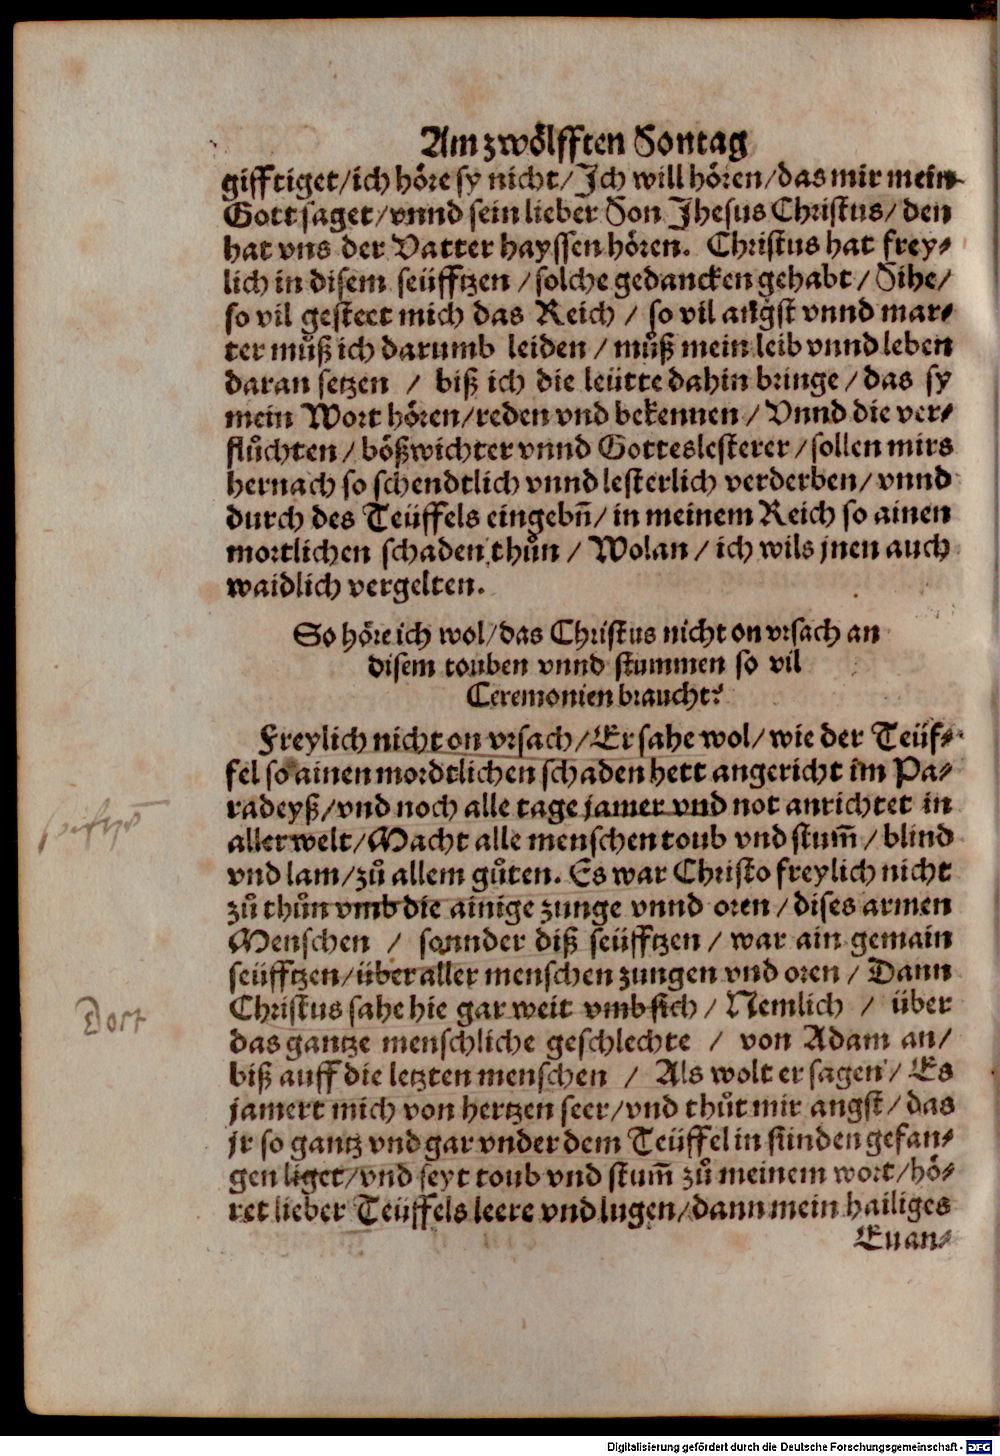 Am zwölfften Sontag
gifftiget/ich höre sy nicht/Ich will hören/das mir mein
Gott saget/vnnd sein lieber Son Jhesus Christus/den
hat vns der Vatter hayssen hören. Christus hat frey⸗
lich in disem seüfftzen/solche gedancken gehabt/Sihe/
so vil gesteet mich das Reich/so vil angst vnnd mar⸗
ter můß ich darumb leiden/můß mein leib vnnd leben
daran setzen/biß ich die leütte dahin bringe/das sy
mein Wort hören/reden vnd bekennen/Vnnd die ver⸗
flůchten/bößwichter vnnd Gotteslesterer/sollen mirs
hernach so schendtlich vnnd lesterlich verderben/vnnd
durch des Teüffels eingebn̄/in meinem Reich so ainen
mortlichen schaden thůn/Wolan/ich wils jnen auch
waidlich vergelten.
So höre ich wol/das Christus nicht on vrsach an
disem touben vnnd stummen so vil
Ceremonien braucht?
Freylich nicht on vrsach/Er sahe wol/wie der Teüf⸗
fel so ainen mordtlichen schaden hett angericht im Pa⸗
radeyß/vnd noch alle tage jamer vnd not anrichtet in
aller welt/Macht alle menschen toub vnd stum̄/blind
vnd lam/zů allem gůten. Es war Christo freylich nicht
zů thůn vmb die ainige zunge vnnd oren/dises armen
Menschen/sonnder diß seüfftzen/war ain gemain
seüfftzen/über aller menschen zungen vnd oren/Dann
Christus sahe hie gar weit vmb sich/Nemlich/über
Dort
das gantze menschliche geschlechte/von Adam an/
biß auff die letzten menschen/Als wolt er sagen/Es
jamert mich von hertzen seer/vnd thůt mir angst/das
jr so gantz vnd gar vnder dem Teüffel in sünden gefan⸗
gen liget/vnd seyt toub vnd stum̄ zů meinem wort/hö⸗
ret lieber Teüffels leere vnd lugen/dann mein hailiges
Euan⸗
Digitalisierung gefördert durch die Deutsche Forschungsgemeinschaft - DFG